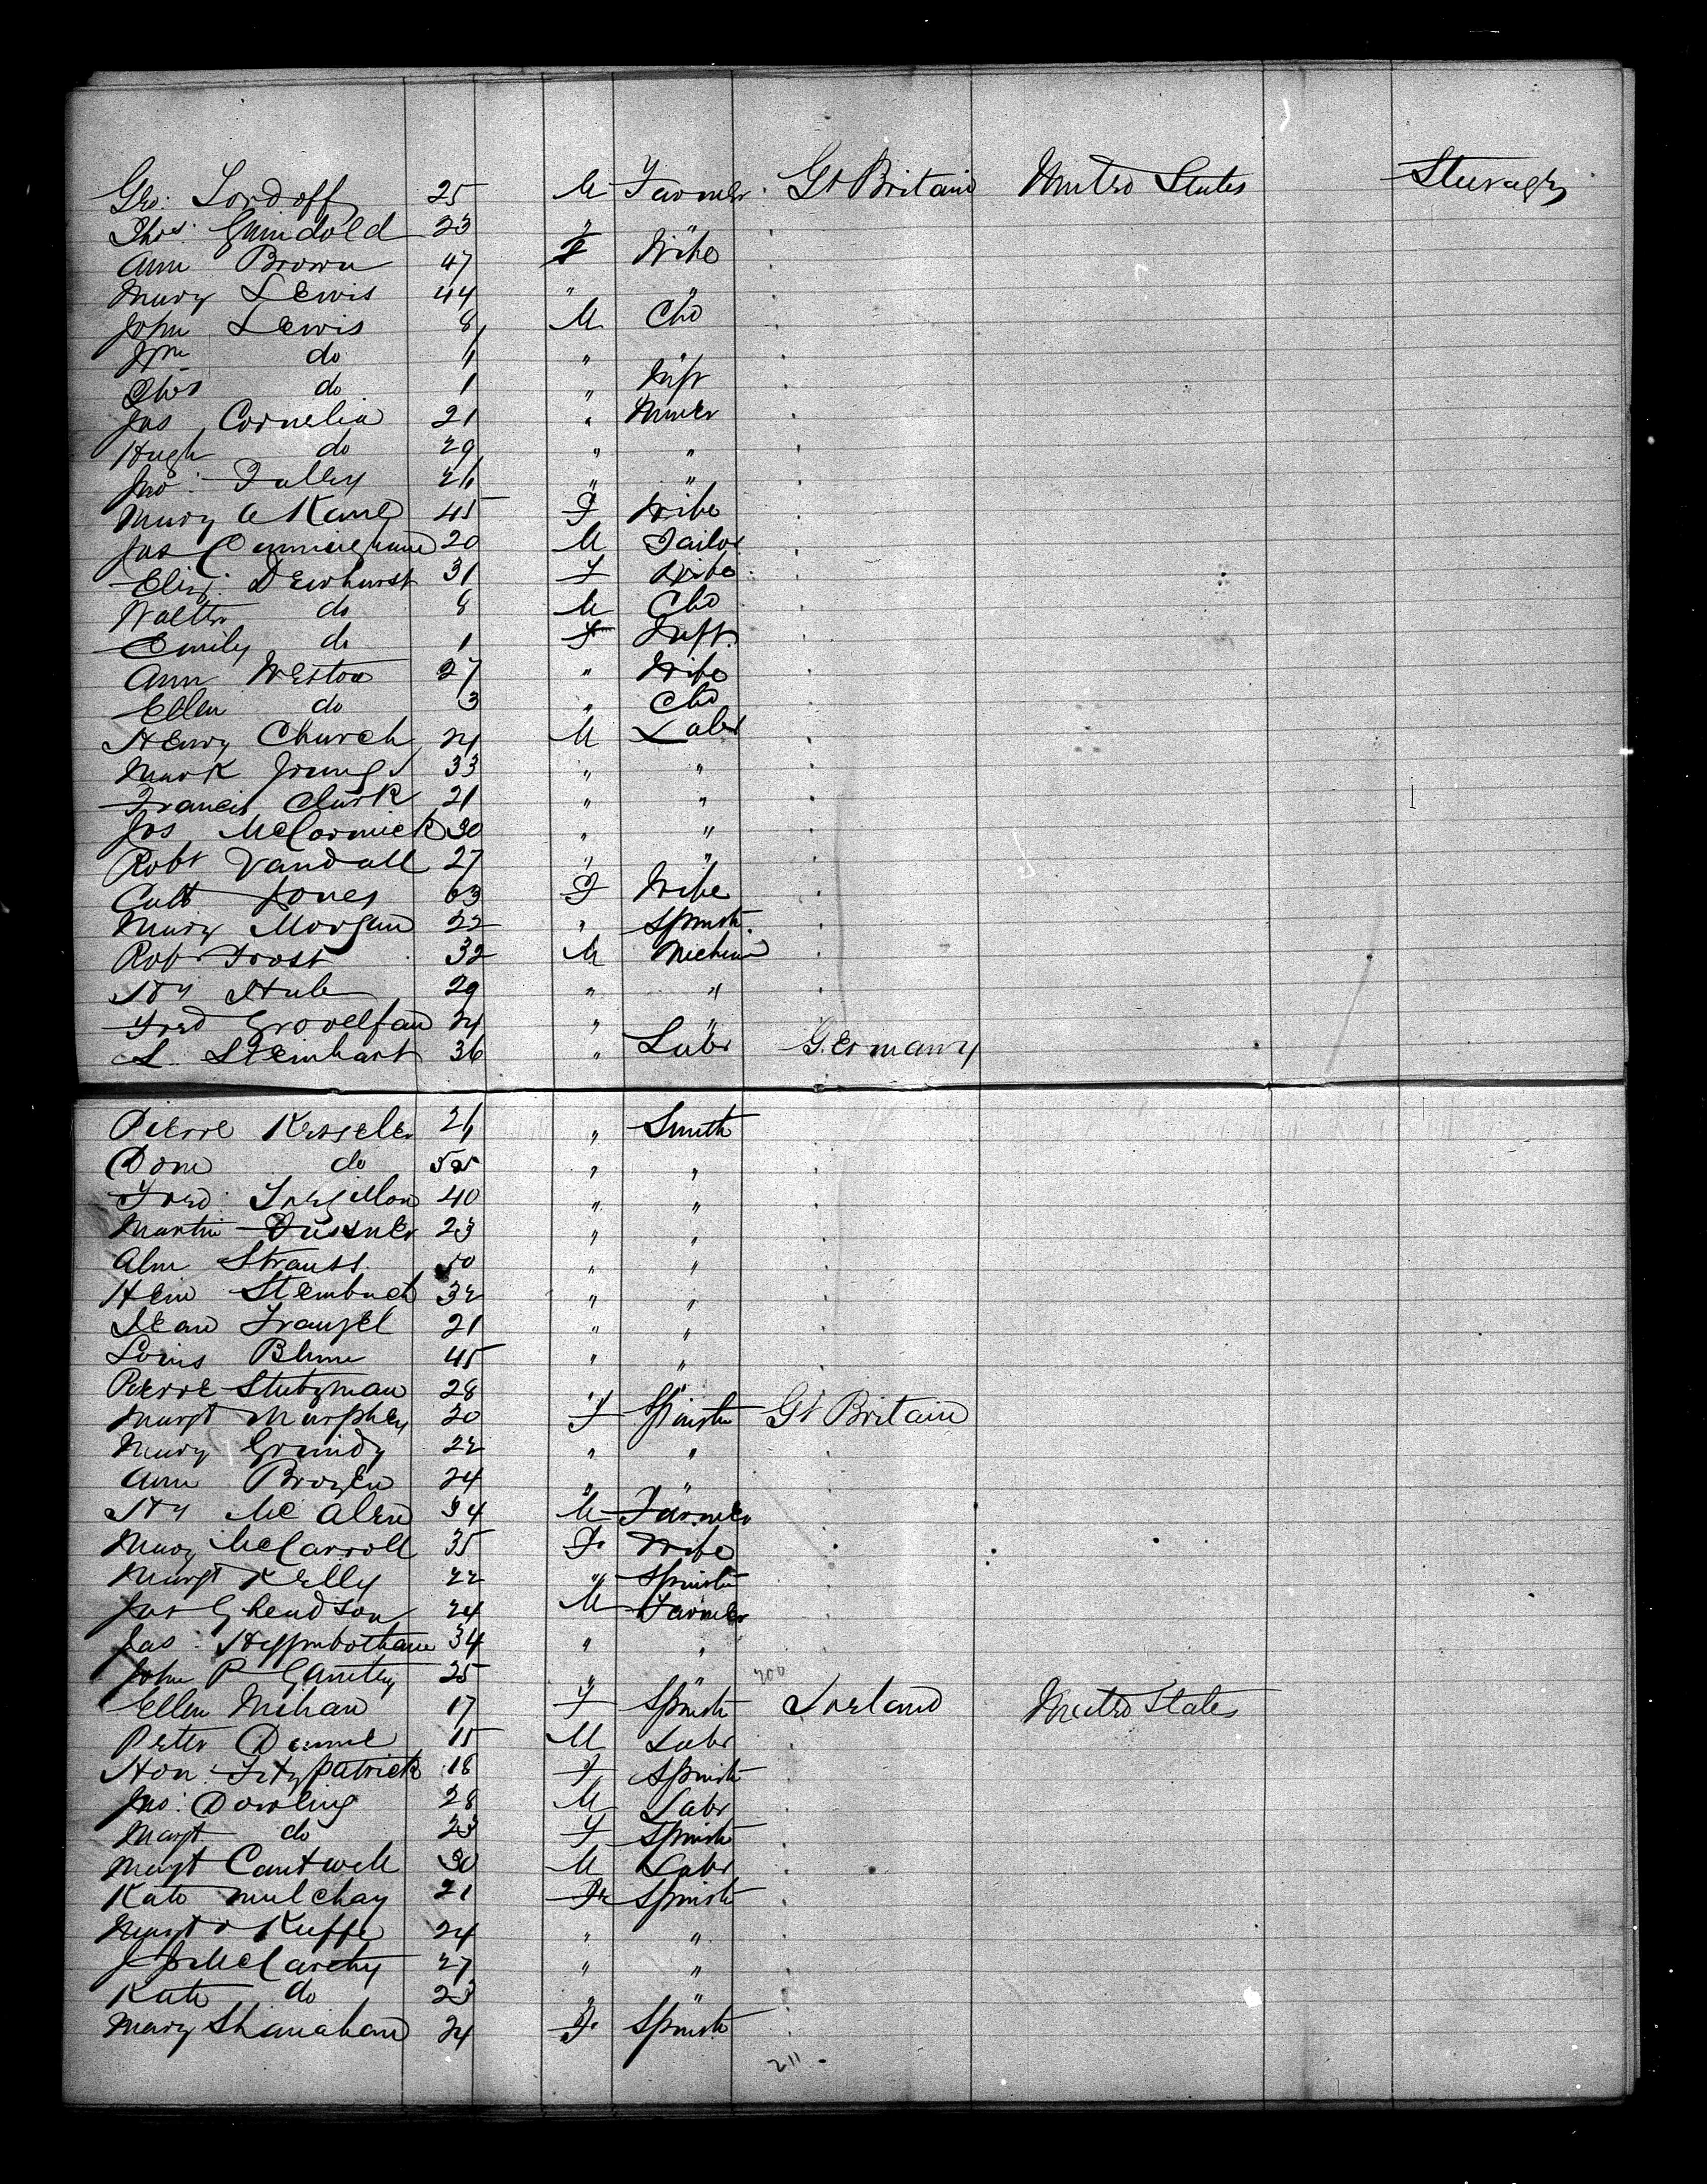 Geo: Tordoff 25 M Farmer Gt Britain United States Steerage
Thos: Grindold 23 " "
Ann Brown 47 F Wife
Mary Lewis 44 " "
John Lewis 8 M Chd
Wm do 4 " "
Thos do 1 " Inft
Jas Cornelia 21 " Miner
Hugh do 29 " "
Jno: Talley 24 " "
Mary A Kane 45 F Wife
Jas Cunningham 20 M Tailor
Eliz: Dewhurst 31 F Wife
Walter do 8 M Chd
Emily do 1 F Inft
Ann Weston 27 " Wife
Ellen do 3 " Chd
Henry Church 24 M Labr
Mark Young 33 " "
Francis Clark 21 " "
Jas McCormick 30 " "
Robt Vandall 27 " "
Cath Jones 63 F Wife
Mary Morgan 22 " Spinstr
Rob Frost 32 M Mechan
Hy Hule 29 " "
Fred Grovelfan 24 " "
L. Steinhart 36 " Labr Germany
Pierre Kesseler 24 " Smith
Dom do 52 " "
Fred: 40 " "
Martin Dussner 23 " "
Alm Strauss 50 " "
Hein Steinbach 32 " "
Jean Franzel 21 " "
Louis Blum 45 " "
Pierre Stutzman 28 " "
Margt Murphey 20 F Spinstr Gt Britain
Mary Grundy 22 " "
Ann Brozen 24 " "
Hy McAlen 34 M Farmer
Mary McCarroll 35 F Wife
Margt Kelly 22 " Spinstr
Jas Ghendson 24 M Farmer
Jas: Heppinbotham 34 " "
John P Gantey 25 " " 200
Ellen Mihan 17 F Spinstr Ireland United States
Peter Dunne 15 M Labr
Hon: Fitzpatrick 18 F Spinstr
Jno: Dowling 28 M Labr
Margt do 23 F Spinstr
Margt Cantwell 30 M Labr
Kate Mulchay 21 F Spinstr
Margt Kuffe 24 " "
J McCarthy 27 " "
Kate do 23 " "
Mary Shanahan 24 F Spinstr
211